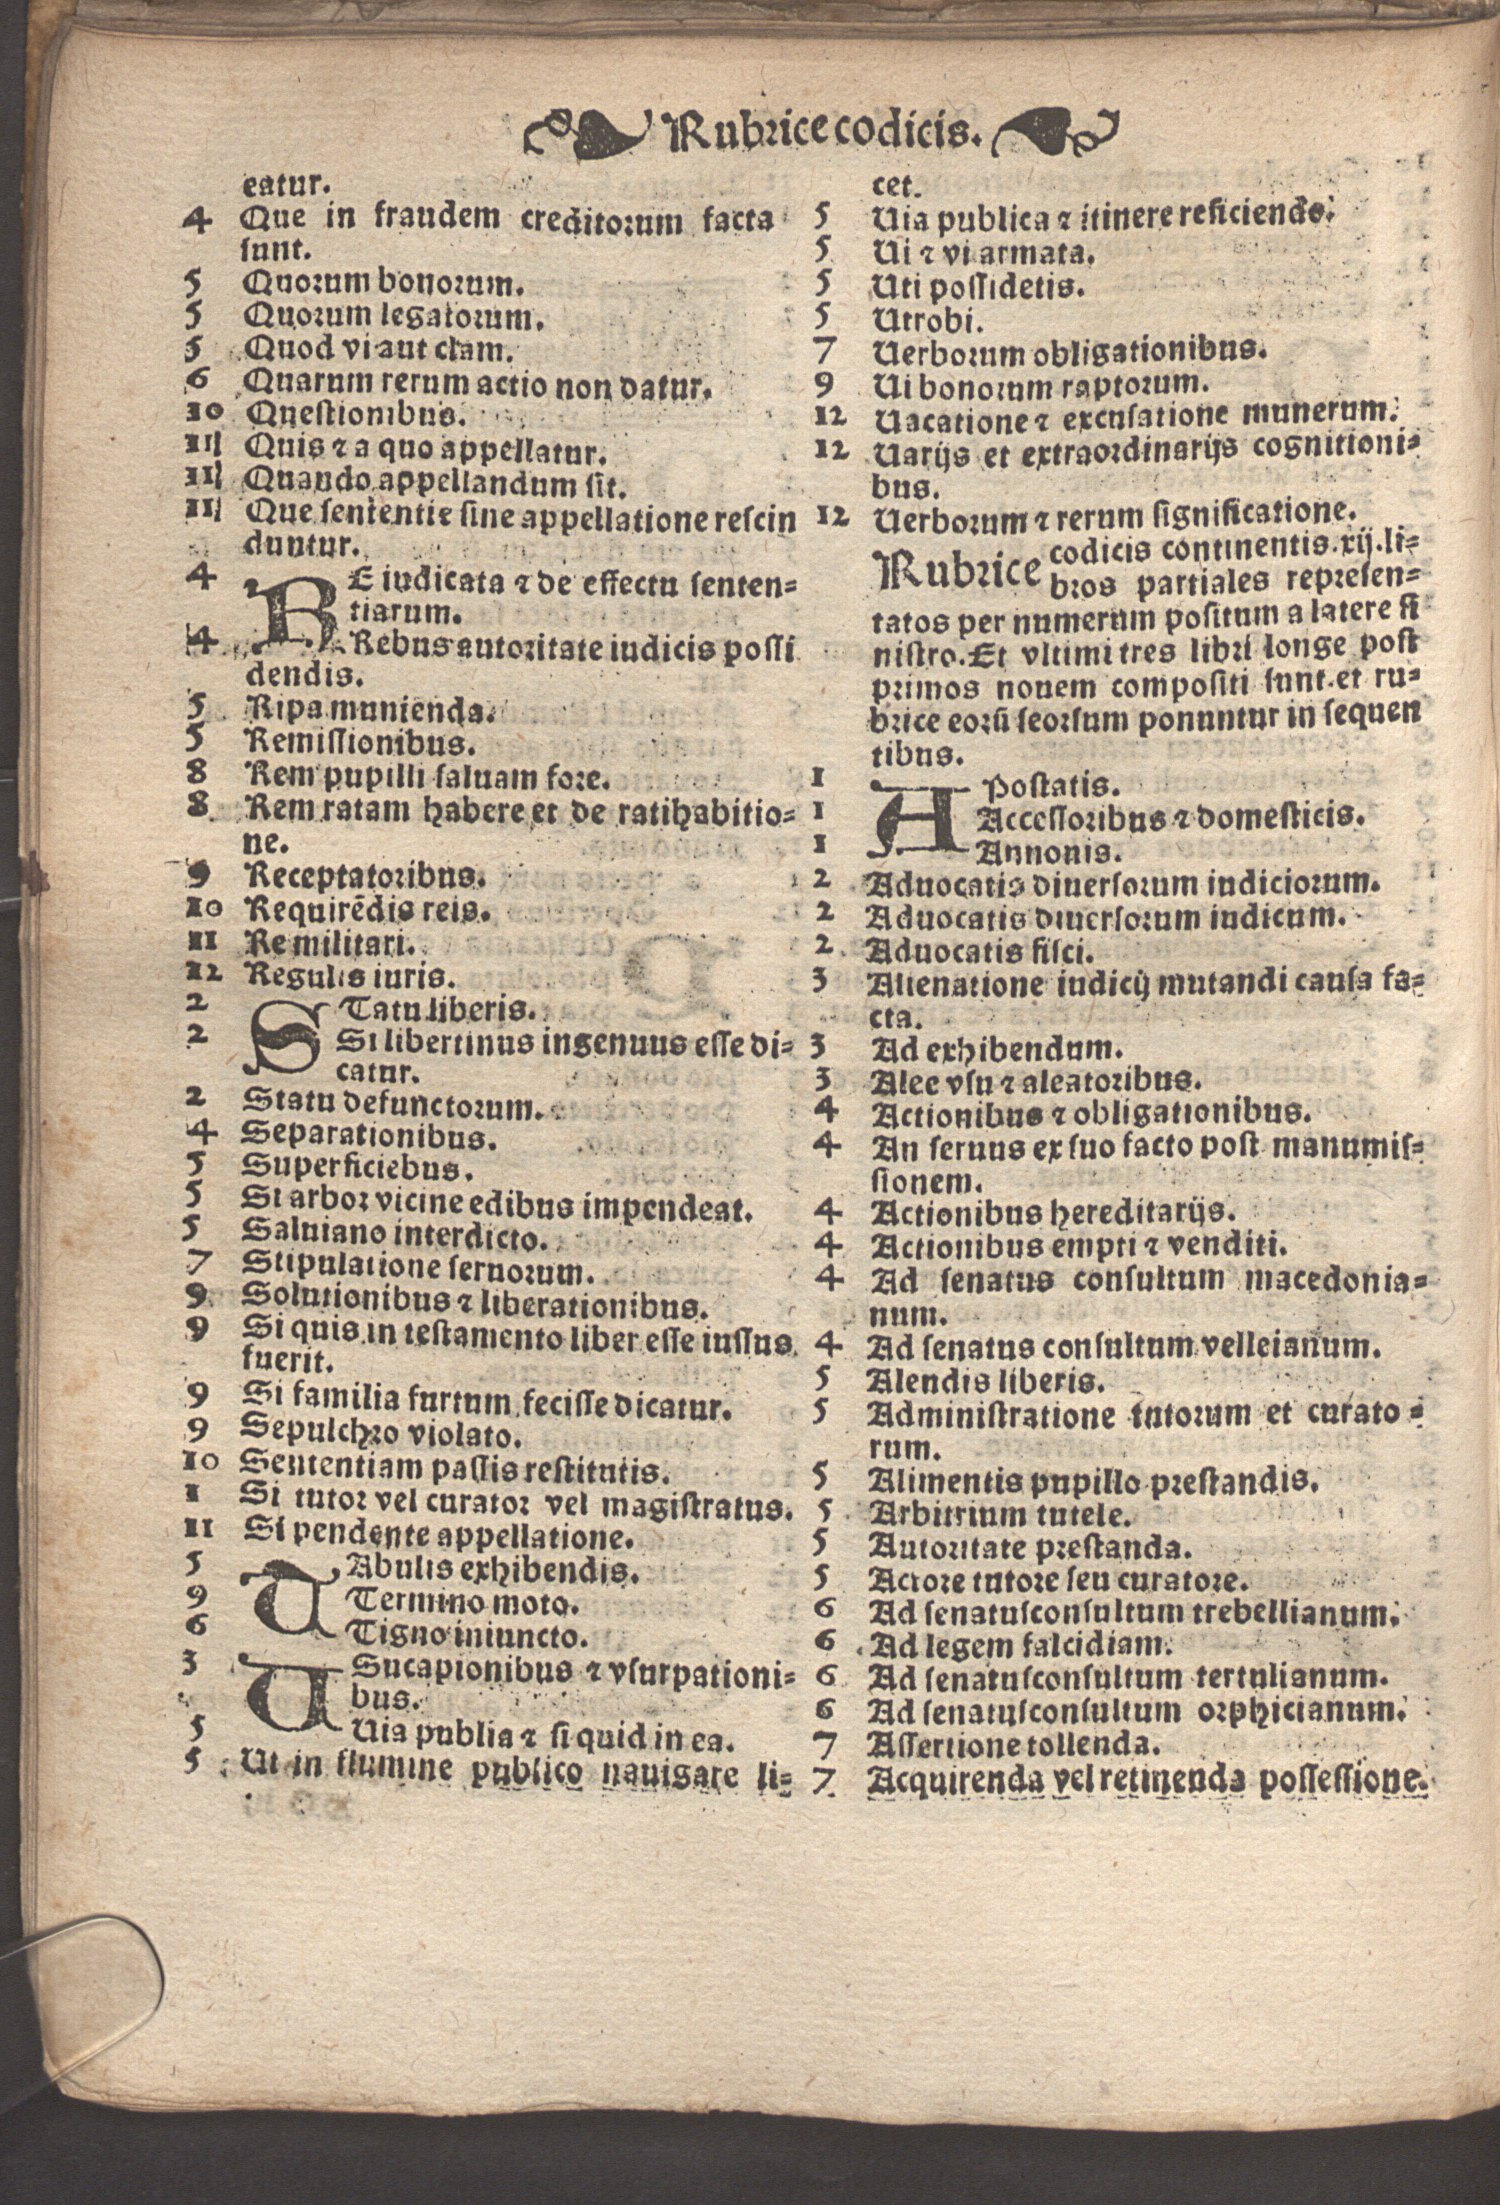 Rubrice codicis.
eatur.
4 Que in fraudem creditorum facta
sunt.
5 Quorum bonorum.
5 Quorum legatorum.
5 Quod vi aut clam.
6 Quarum rerum actio non datur.
10 Questionibus.
11 Quis ⁊ a quo appellatur.
11 Quando appellandum sit.
11 Que sententie sine appellatione rescin
duntur.
4 RE iudicata ⁊ de effectu senten⸗
tiarum.
4 Rebus autoritate iudicis possi
dendis.
5 Ripa munienda.
5 Remissionibus.
8 Rem pupilli saluam fore.
8 Rem ratam habere et de ratihabitio⸗
ne.
9 Receptatoribus.
10 Requirēdis reis.
11 Re militari.
12 Regulis iuris.
2 STatu liberis.
2 Si libertinus ingenuus esse di⸗
catur.
2 Statu defunctorum.
4 Separationibus.
5 Superficiebus.
5 Si arbor vicine edibus impendeat.
5 Saluiano interdicto.
7 Stipulatione seruorum.
9 Solutionibus ⁊ liberationibus.
9 Si quis in testamento liber esse iussus
fuerit.
9 Si familia furtum fecisse dicatur.
9 Sepulchro violato.
10 Sententiam passis restitutis.
1 Si tutor vel curator vel magistratus.
11 Si pendente appellatione.
5 TAbulis exhibendis.
9 Termino moto.
6 Tigno iniuncto.
3 USucapionibus ⁊ vsurpationi⸗
bus.
5 Uia publia ⁊ si quid in ea.
5 Ut in flumine publico nauigare li⸗
cet.
5 Uia publica ⁊ itinere reficiendo.
5 Ui ⁊ vi armata.
5 Uti possidetis.
5 Utrobi.
7 Uerborum obligationibus.
9 Ui bonorum raptorum.
12 Uacatione ⁊ excusatione munerum.
12 Uarijs et extraordinarijs cognitioni⸗
bus.
12 Uerborum ⁊ rerum significatione.
Rubrice codicis continentis .xij. li⸗
bros partiales represen⸗
tatos per numerum positum a latere si
nistro. Et vltimi tres libri longe post
primos nouem compositi sunt. et ru⸗
brice eorū seorsum ponuntur in sequen
tibus.
1 APostatis.
1 Accessoribus ⁊ domesticis.
1 Annonis.
2 Aduocatis diuersorum iudiciorum.
2 Aduocatis diuersorum iudicum.
2 Aduocatis fisci.
3 Alienatione iudicij mutandi causa fa⸗
cta.
3 Ad exhibendum.
3 Alee vsu ⁊ aleatoribus.
4 Actionibus ⁊ obligationibus.
4 An seruus ex suo facto post manumis⸗
sionem.
4 Actionibus hereditarijs.
4 Actionibus empti ⁊ venditi.
4 Ad senatus consultum macedonia⸗
num.
4 Ad senatus consultum velleianum.
5 Alendis liberis.
5 Administratione tutorum et curato⸗
rum.
5 Alimentis pupillo prestandis.
5 Arbitrium tutele.
5 Autoritate prestanda.
5 Actore tutore seu curatore.
6 Ad senatusconsultum trebellianum.
6 Ad legem falcidiam.
6 Ad senatusconsultum tertulianum.
6 Ad senatusconsultum orphicianum.
7 Assertione tollenda.
7 Acquirenda vel retinenda possessione.